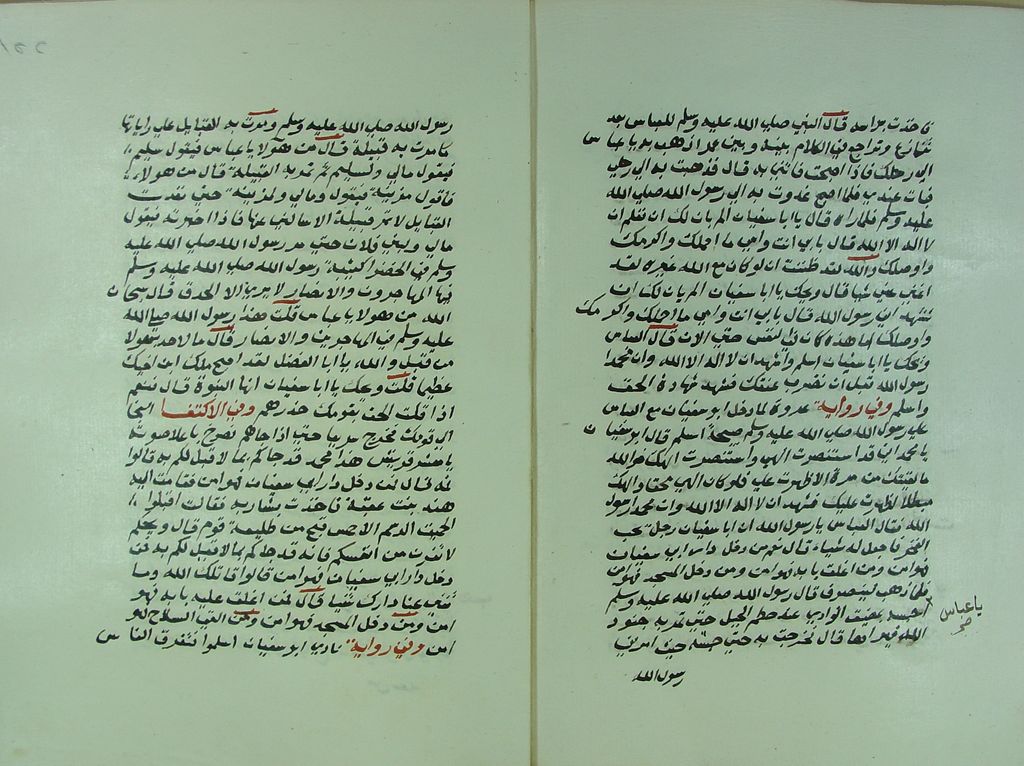 فاخذت براسه قال النبي صلى الله عليه وسلم للعباس بعد
وتراجع في الكلام بينه وبين عمر اذهب به يا عباس
الى رحلك فاذا اصبحت فاتني به قال فذهبت به الى رحلي
فبات عندي فلما اصبح غدوت به الى رسول الله صلى الله
عليه وسلم فلما راه قال يا ابا سفيان الم يان لك ان تعلم ان
لا اله الا الله قال بابي انت وامي ما احلمك واكرمك
واوصلك والله لقد ظننت ان لو كان مع الله غيره لقد
اغنى عني شيا قال ويحك يا ابا سفيان الم يان لك ان
تشهد اني رسول الله قال بابي انت وامي ما احلمك واكرمك
واوصلك اما هذه كان في النفس حتى الان قال العباس
ويحك يا ابا سفيان اسلم واشهد ان لا اله الا الله وان محمدا
رسول الله قبل ان تضرب عنقك فشهد شهادة الحق
واسلم وفي رواية عروة لما دخل ابو سفيان مع العباس
على رسول الله صلى الله عليه وسلم صبيحة اسلم قال ابو سفيان
يا محمد اني قد استنصرت الهي واستنصرت الهك فوالله
ما لقيتك من مرة الا ظهرت علي فلو كان الهي محقا والهك
مبطلا لظهرت عليك فشهد ان لا اله الا الله وان محمد رسول
الله فقال العباس يا رسول الله ان ابا سفيان رجل يحب
الفخر فاجعل له شياء قال نعم من دخل دار ابي سفيان
فهو امن ومن اغلق بابه فهو امن ومن دخل المسجد فهو امن
فلما ذهب لينصرف قال رسول الله صلى الله عليه وسلم
احبسه بمضيق الوادي عند حطم الجبل حتى تمر به جنود
الله فيراها قال فخرجت به حتى حبسته حيث امرني
رسول الله
يا عباس
صح
رسول الله صلى الله عليه وسلم ومرت به القبايل على راياتها
كلما مرت به قبيلة قال من هولا يا عباس فيقول سليم
فيقول مالي ولسليم ثم تمر به القبيلة قال من هولاء
فاقول مزينة فيقول ومالي ولمزينة حتى نفدت
القبايل لا تمر قبيلة الا سالني عنها فاذا اخبرته فيقول
مالي وبني فلان حتى مر رسول الله صلى الله عليه
وسلم في الخضرا كتيبة رسول الله صلى الله عليه وسلم
فيها المهاجرون والانصار لا يرى الا الحدق قال سبحان
الله من هولا يا عباس قلت هذا رسول الله صلى الله
عليه وسلم في المهاجرين والانصار قال ما لاحد بهولا
من قبل والله يا ابا الفضل لقد اصبح ملك ابن اخيك
عظيما قلت ويحك يا ابا سفيان انها النبوة قال نعم
اذا قلت الحق بقومك حذرهم وفي الاكتفا
الى قومك فخرج سريعا حتى اذا جاهم صرخ باعلا صوته
يا معشر قريش هذا محمد قد جاكم بما لا قبل لكم به قالوا
فمه قال من دخل دار ابي سفيان فهو امن فقامت اليه
هند بنت عتبة فاخذت بشاربه فقالت اقتلوا
الحميت الدسم الاحمس قبح من طليعة قوم قال ويحكم
لا تغرن من انفسكم فانه قد جاكم بما لا قبل لكم به من
دخل دار ابي سفيان فهو امن قالوا قاتلك الله وما
تغني عنا دارك شيا قال من اغلق عليه بابه فهو
امن ومن دخل المسجد فهو امن ومن القى السلاح فهو
امن وفي رواية نادى ابو سفيان اسلموا فتفرق الناس